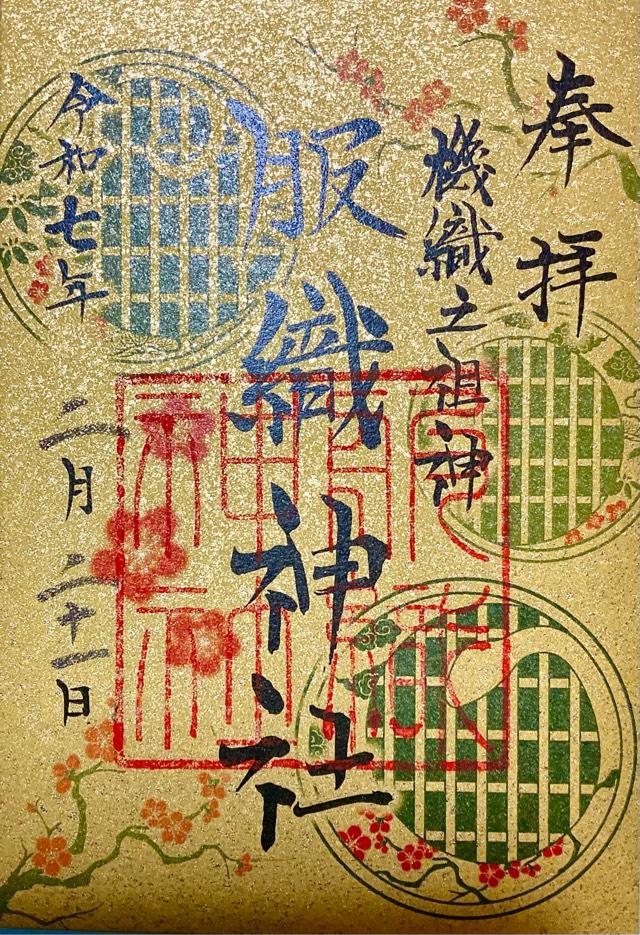 奉拝
機織之祖神
服織神社
服織神社
令和七年
二月二十一日